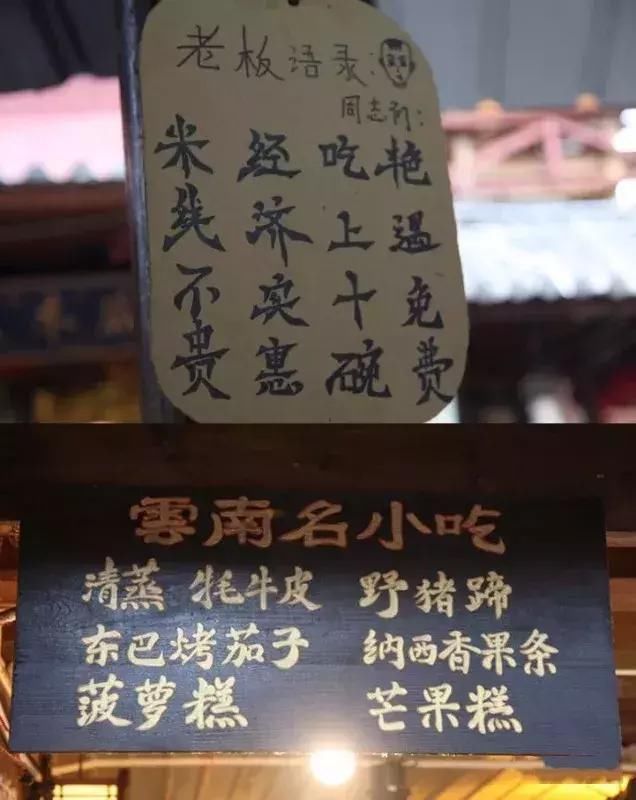 老板语录:
同志们:
米线不贵
经济实惠
吃上十碗
艳遇免费
雲南名小吃
清蒸 牦牛皮 野猪蹄
东巴烤茄子 纳西香果条
菠萝糕 芒果糕